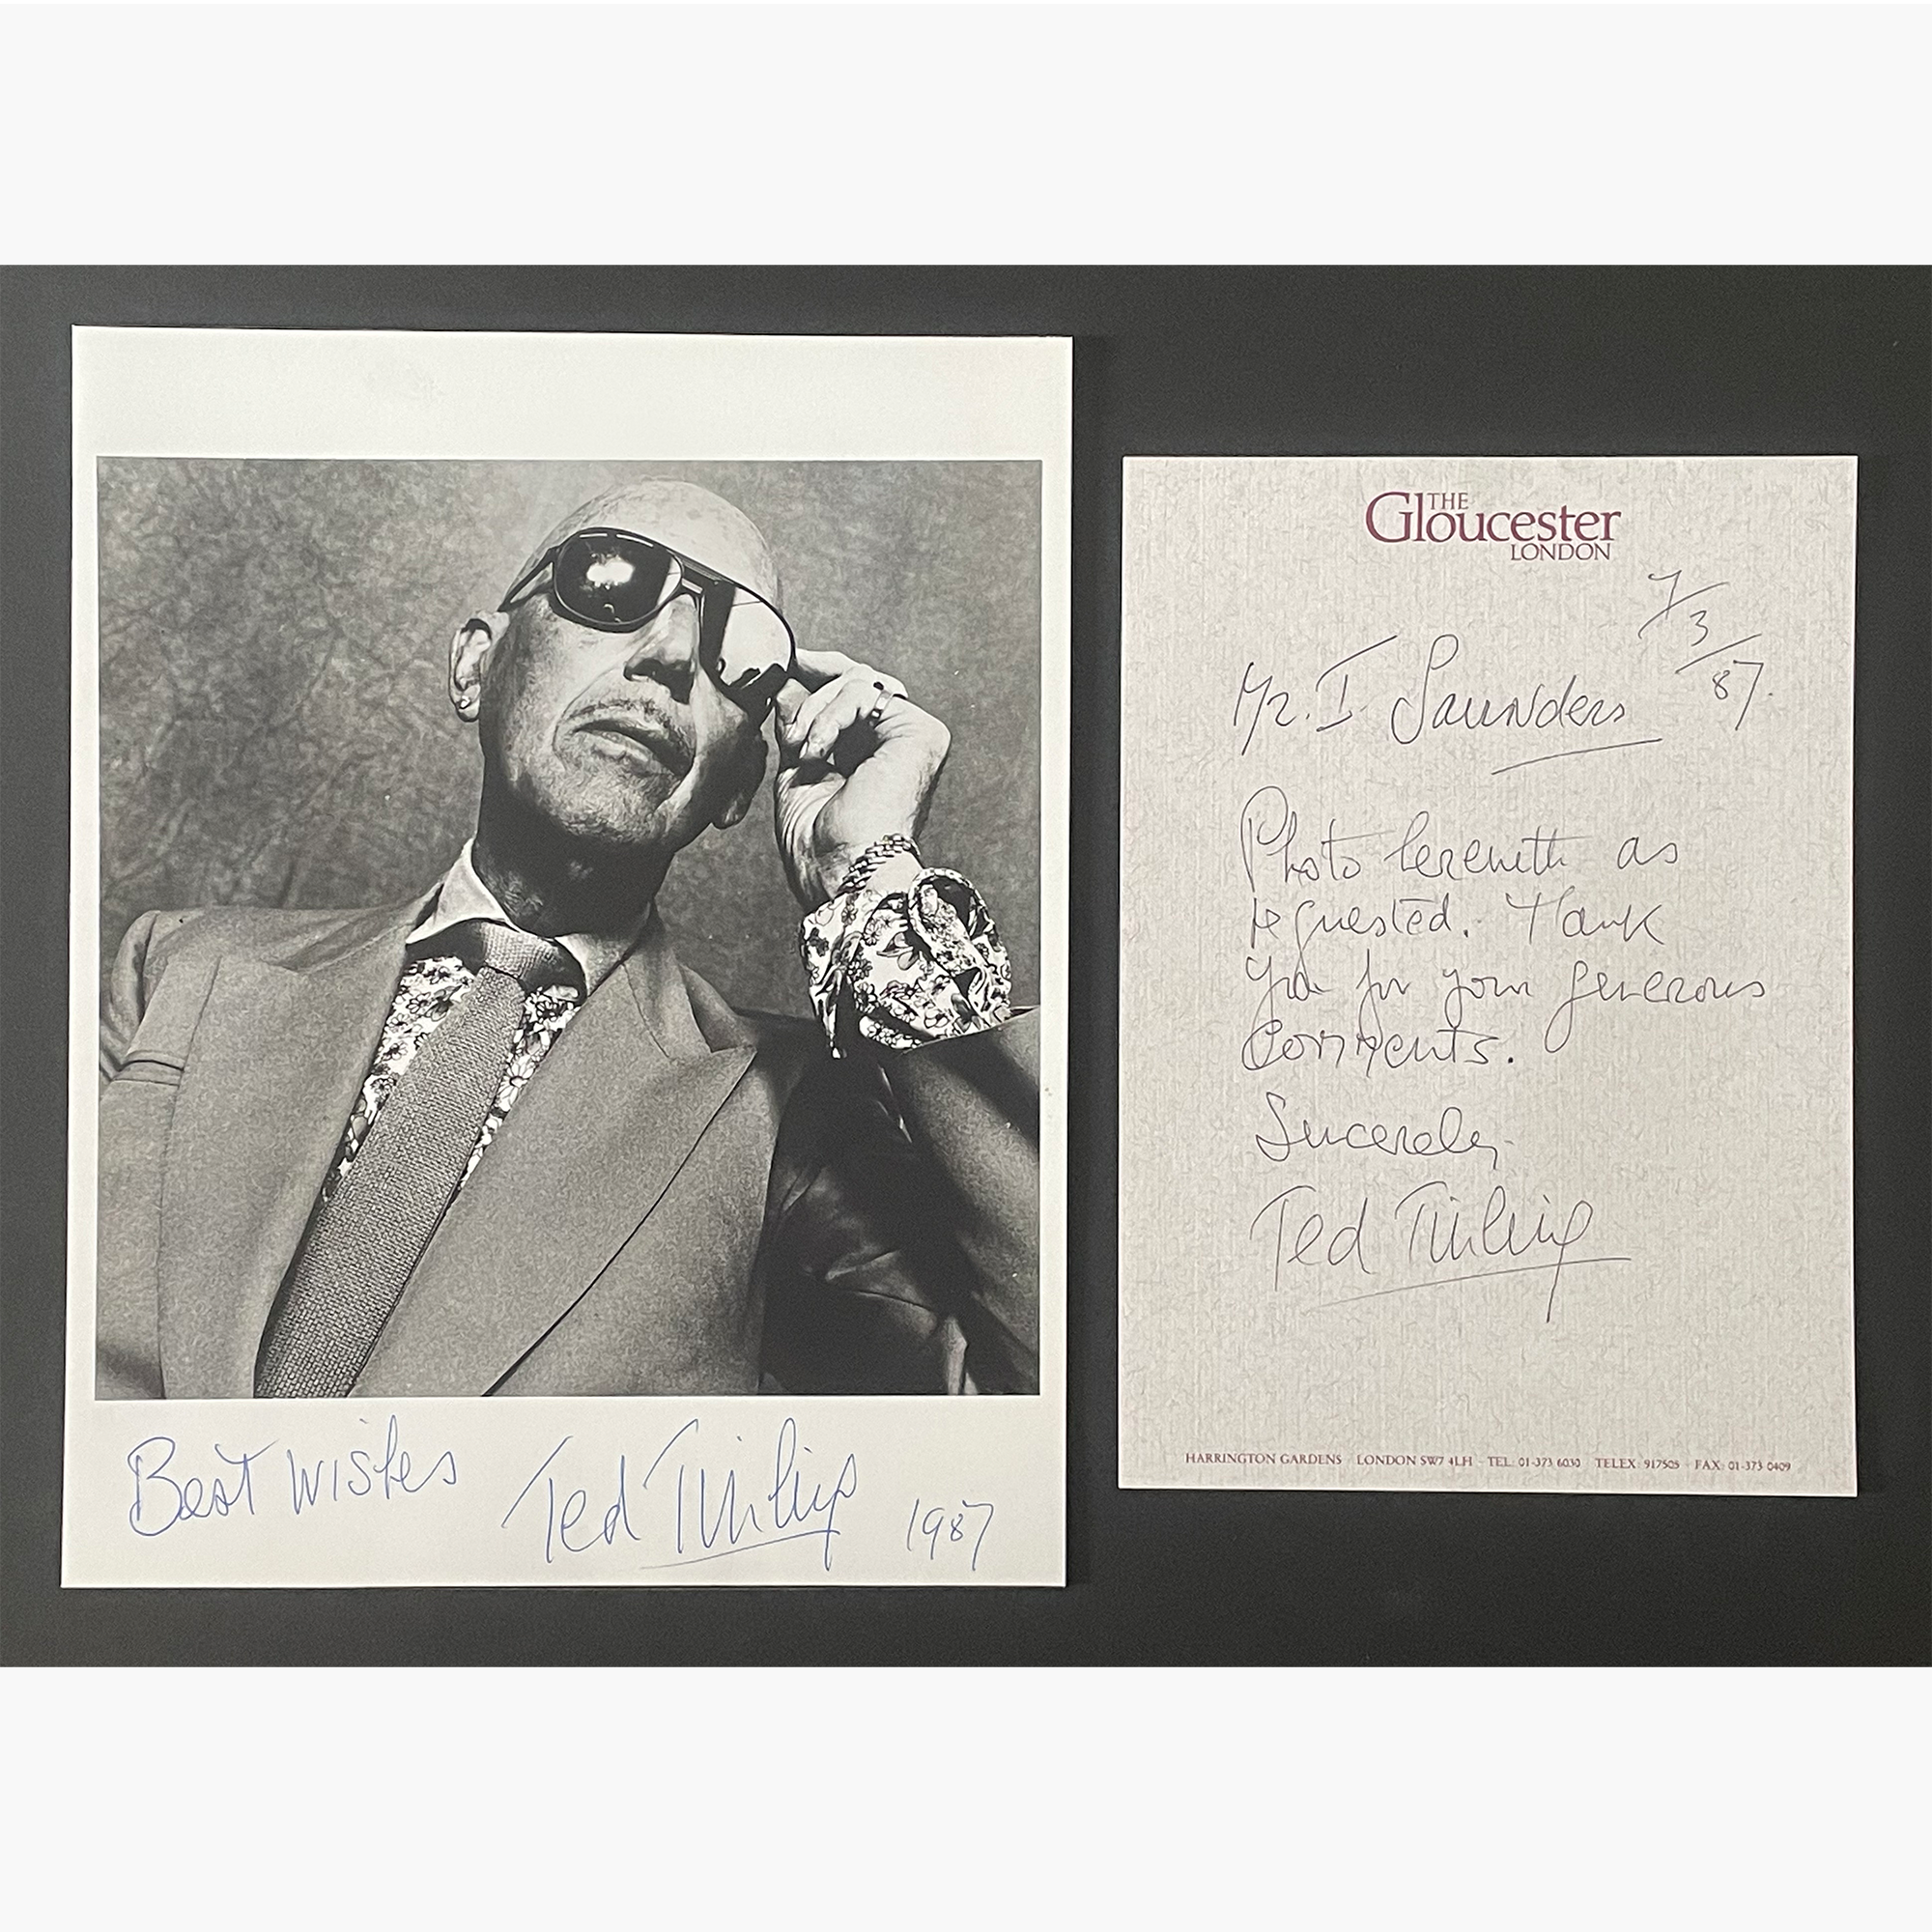 Best wishes Ted Tinling 1987
THE
Gloucester
LONDON
7/3/87.
Mr. I. Saunders
Photo herewith as
requested. Thank
you for your generous
comments.
Sincerely
Ted Tinling
HARRINGTON GARDENS LONDON SW7 4LH TEL: 01-373 6030 TELEX 917505 FAX: 01-373 0409